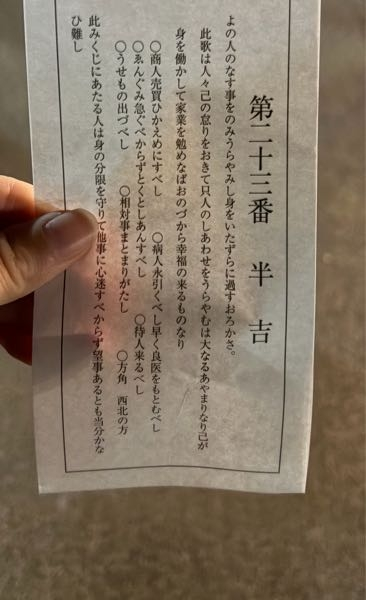 第二十三番　半　吉
よの人のなす事をのみうらやみし身をいたずらに過すおろかさ。
此歌は人々己の怠りをおきて只人のしあわせをうらやむは大なるあやまりなり己が
身を働かして家業を勉めなばおのづから幸福の来るものなり
〇商人売買ひかえめにすべし　〇病人永引くべし早く良医をもとむべし
〇ゑんぐみ急ぐべからずとくとしあんすべし　〇待人来るべし
〇うせもの出づべし　〇相対事まとまりがたし　〇方角　西北の方
此みくじにあたる人は身の分限を守りて他事に心迷すべからず望事あるとも当分かな
ひ難し